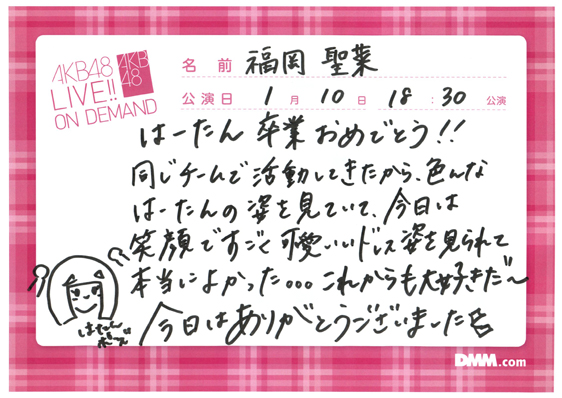 AKB48
LIVE!!
ON DEMAND
AKB
48
名前 福岡 聖菜
公演日 1月10日 18:30 公演
はーたん 卒業 おめでとう!!
同じチームで活動してきたから、色んな
はーたんの姿を見ていて、今日は
笑顔ですごく可愛いいドレス姿を見られて
本当によかった...これからも大好きだ〜
はーたん
ポーズ
今日はありがとうございました
DMM.com